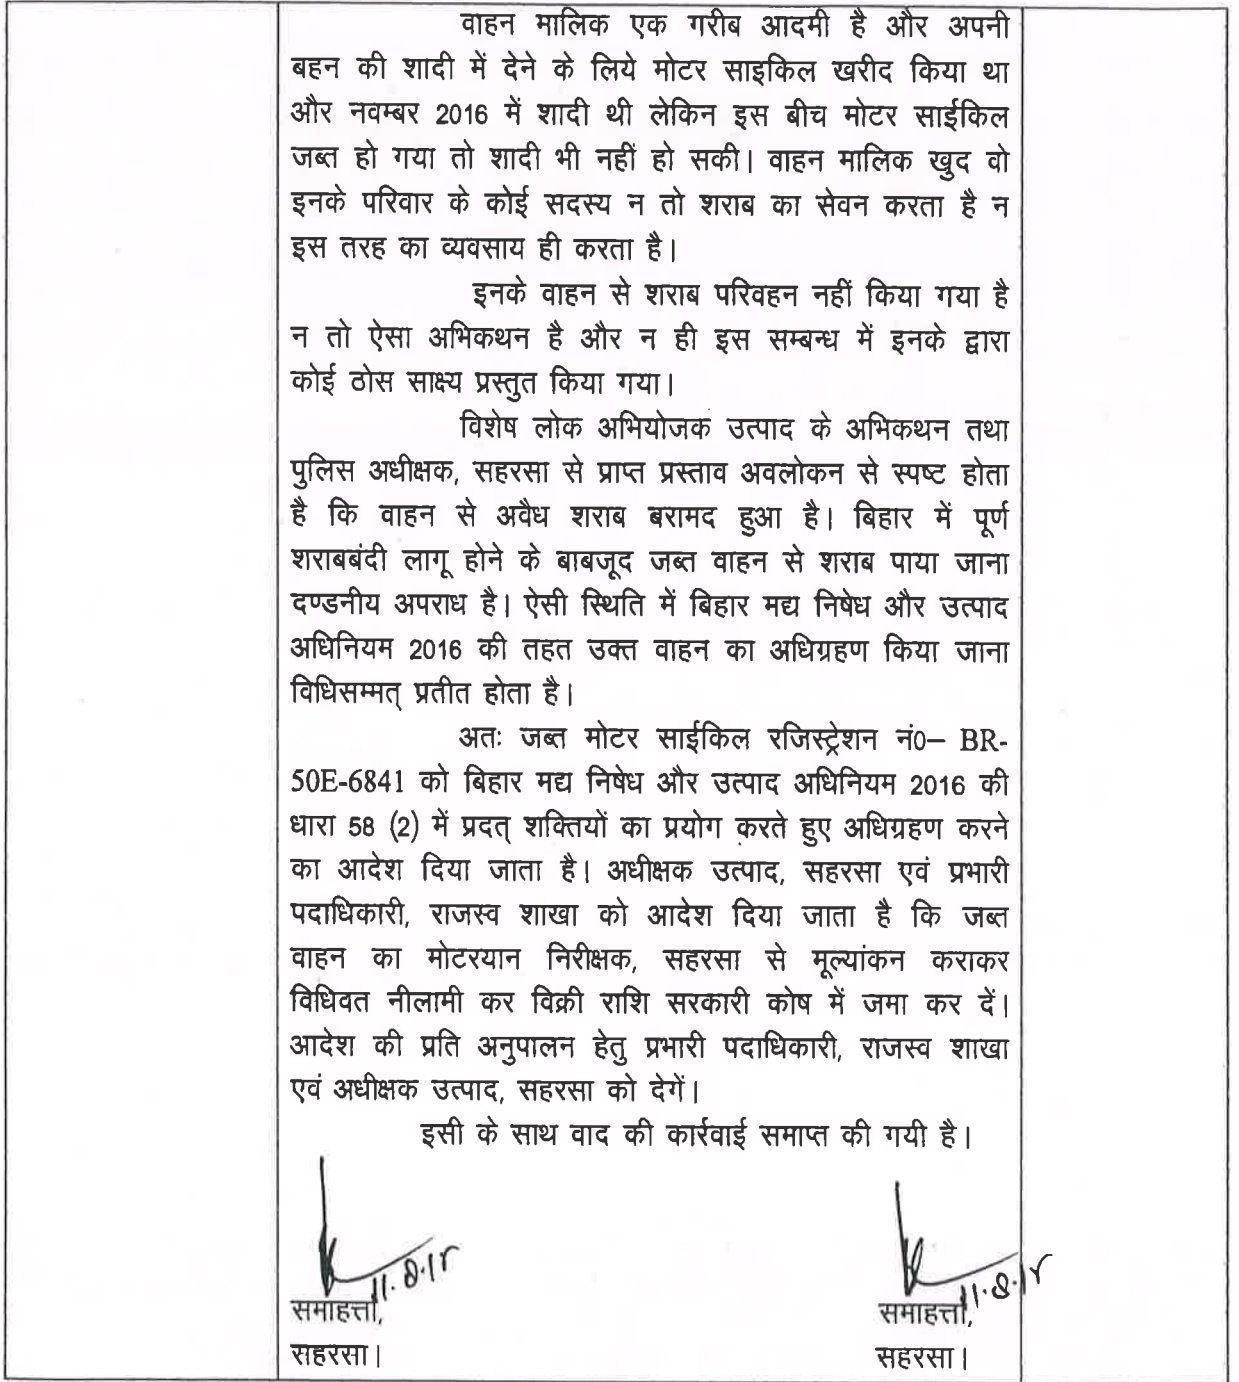 वाहन मालिक एक गरीब आदमी है और अपनी
बहन की शादी में देने के लिये मोटर साइकिल खरीद किया था
और नवम्बर 2016 में शादी थी लेकिन इस बीच मोटर साईकिल
जब्त हो गया तो शादी भी नहीं हो सकी। वाहन मालिक खुद वो
इनके परिवार के कोई सदस्य न तो शराब का सेवन करता है न
इस तरह का व्यवसाय ही करता है।
इनके वाहन से शराब परिवहन नहीं किया गया है
न तो ऐसा अभिकथन है और न ही इस सम्बन्ध में इनके द्वारा
कोई ठोस साक्ष्य प्रस्तुत किया गया।
विशेष लोक अभियोजक उत्पाद के अभिकथन तथा
पुलिस अधीक्षक, सहरसा से प्राप्त प्रस्ताव अवलोकन से स्पष्ट होता
है कि वाहन से अवैध शराब बरामद हुआ है। बिहार में पूर्ण
शराबबंदी लागू होने के बाबजूद जब्त वाहन से शराब पाया जाना
दण्डनीय अपराध है। ऐसी स्थिति में बिहार मद्य निषेध और उत्पाद
अधिनियम 2016 की तहत उक्त वाहन का अधिग्रहण किया जाना
विधिसम्मत् प्रतीत होता है।
अतः जब्त मोटर साईकिल रजिस्ट्रेशन नं0– BR-
50E-6841 को बिहार मद्य निषेध और उत्पाद अधिनियम 2016 की
धारा 58 (2) में प्रदत् शक्तियों का प्रयोग करते हुए अधिग्रहण करने
का आदेश दिया जाता है। अधीक्षक उत्पाद, सहरसा एवं प्रभारी
पदाधिकारी, राजस्व शाखा को आदेश दिया जाता है कि जब्त
वाहन का मोटरयान निरीक्षक, सहरसा से मूल्यांकन कराकर
विधिवत नीलामी कर विक्री राशि सरकारी कोष में जमा कर दें।
आदेश की प्रति अनुपालन हेतु प्रभारी पदाधिकारी, राजस्व शाखा
एवं अधीक्षक उत्पाद, सहरसा को देगें।
इसी के साथ वाद की कार्रवाई समाप्त की गयी है।
समाहर्त्ता, समाहर्त्ता,
सहरसा। सहरसा।